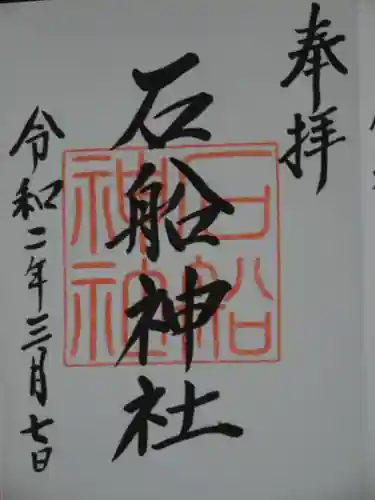 奉拝
石船神社
石船神社
令和二年三月七日